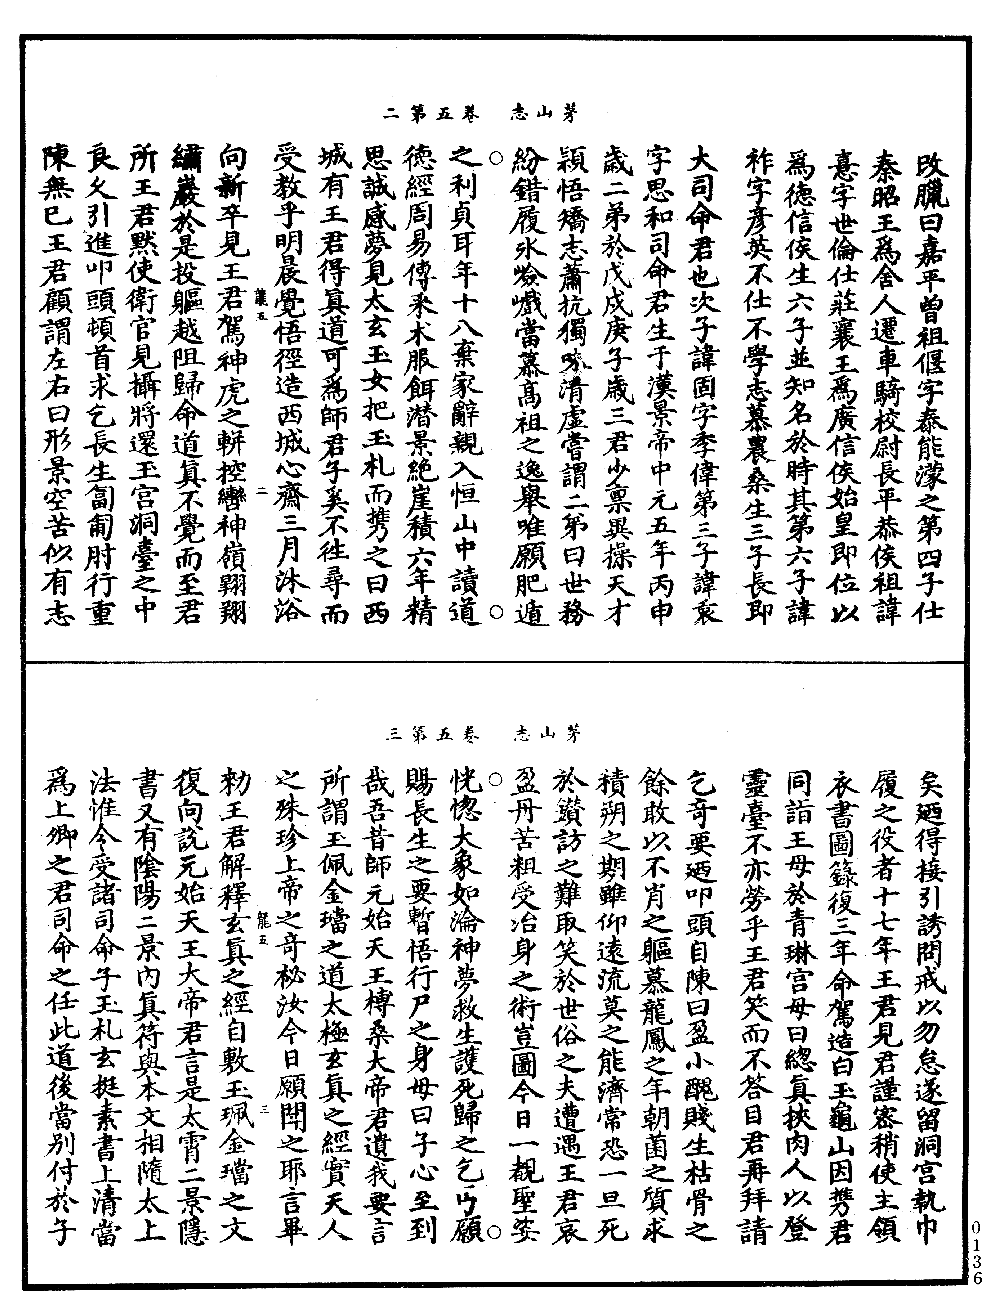 茅山志　卷五第二
改臘曰嘉平曾祖偃字泰能濛之第四子仕
秦昭王爲舍人遷車騎校尉長平恭侯祖諱
憙字世倫仕莊襄王爲廣信侯始皇即位以
爲德信侯生六子並知名於時其第六子諱
祚字彥英不仕不學志慕農桑生三子長即
大司命君也次子諱固字季偉第三子諱衷
字思和司命君生于漢景帝中元五年丙申
歲二弟於戊戌庚子歲三君少禀異操天才
頴悟矯志蕭抗獨味清虛嘗謂二弟曰世務
紛錯履氷嶮巇當慕高祖之逸舉唯願肥遁
之利貞耳年十八棄家辭親入恒山中讀道
德經周易傳采木服餌潛景絶崖積六年精
思誠感夢見太玄玉女把玉札而携之曰西
城有王君得真道可爲師君子奚不徃尋而
受教乎明晨覺悟徑造西城心齋三月沐浴
向新卒見王君駕神虎之輧控轡神嶺翱翔
繡巖於是投軀越阻歸命道真不覺而至君
所王君默使衛官見攝將還王宮洞臺之中
良久引進叩頭頓首求乞長生匍匐肘行重
陳無已王君顧謂左右曰形景空苦似有志
茅山志　卷五第三
矣廼得接引誘問戒以勿怠遂留洞宮執巾
履之役者十七年王君見君謹密稍使主領
衣書圖籙復三年命駕造白玉龜山因携君
同詣王母於青琳宮母曰總真挾肉人以登
靈臺不亦勞乎王君笑而不答目君再拜請
乞奇要廼叩頭自陳曰盈小醜賤生枯骨之
餘敢以不肖之軀慕龍鳳之年朝菌之質求
積朔之期雖仰遠流莫之能濟常恐一旦死
於鑽訪之難取笑於世俗之夫遭遇王君哀
盈丹苦粗受治身之術豈圖今日一覩聖姿
恍惚大象如淪神夢救生護死歸之乞丐願
賜長生之要暫悟行尸之身母曰子心至到
哉吾昔師元始天王榑桑大帝君遺我要言
所謂玉佩金璫之道太極玄真之經實天人
之珠珍上帝之奇秘汝今日願聞之耶言畢
勑王君解釋玄真之經自敷玉珮金璫之文
復向說元始天王大帝君言是太霄二景隱
書又有陰陽二景內真符與本文相隨太上
法惟令受諸司命子玉札玄挺素書上清當
爲上卿之君司命之任此道後當別付於子
0136